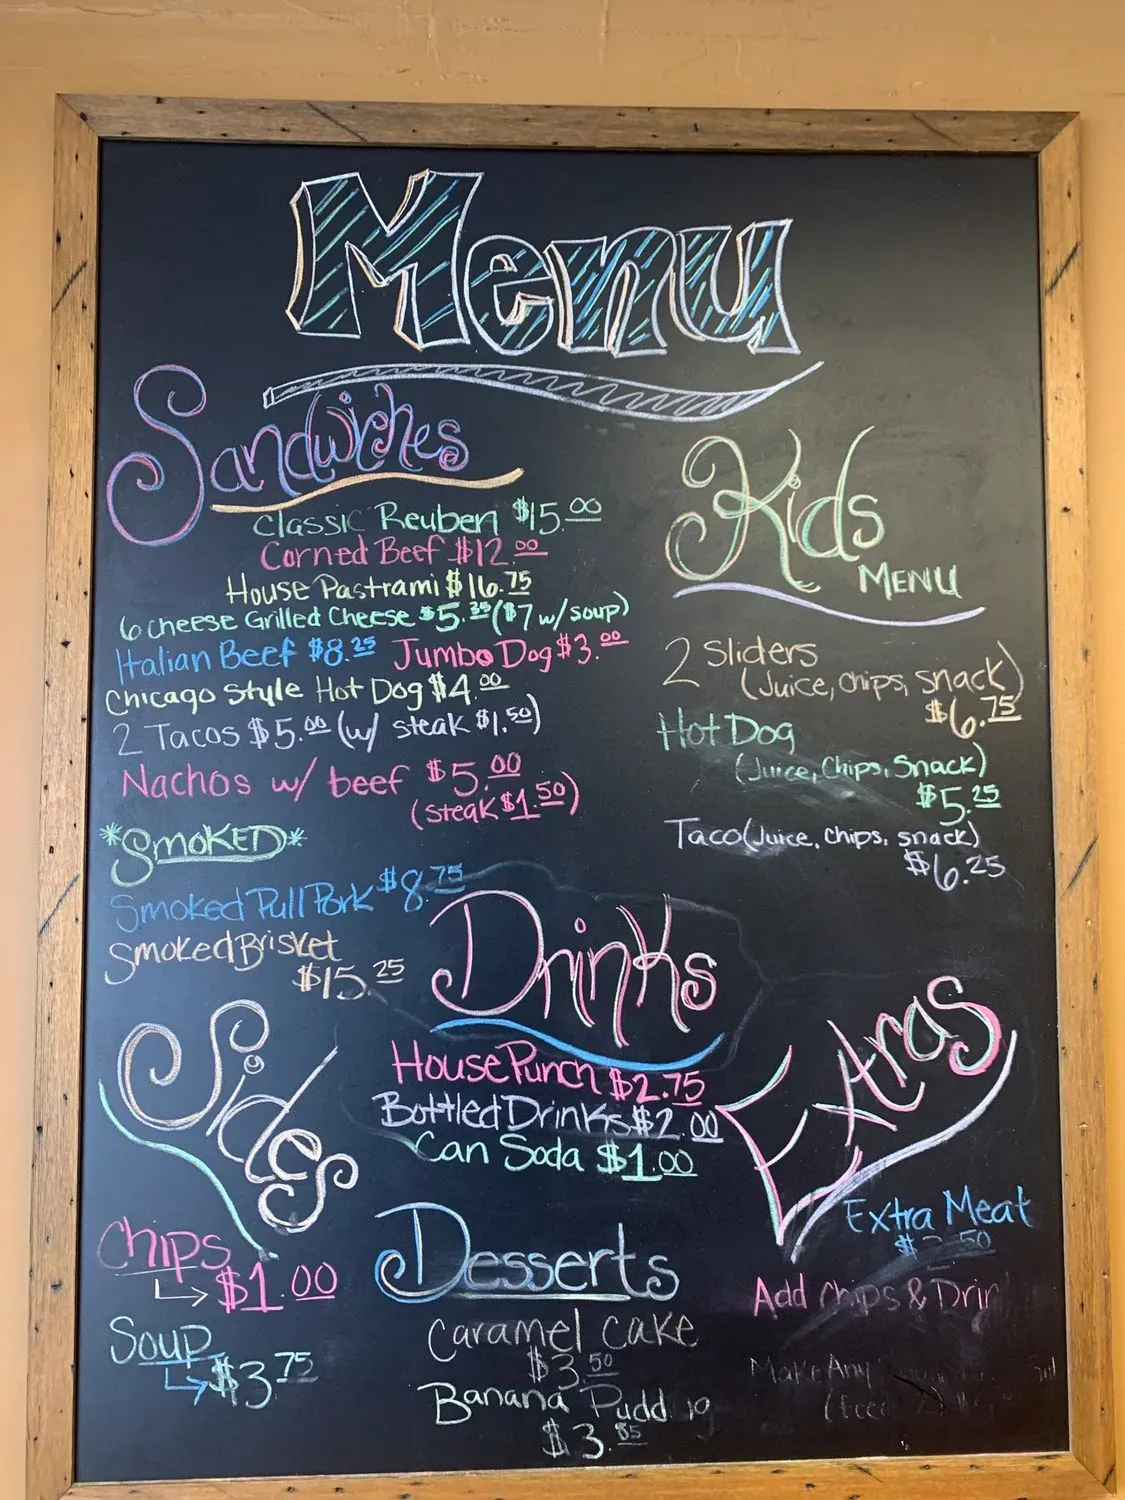 Menu
Sandwiches
Classic Reuben $15.00
Corned Beef $12.00
House Pastrami $16.75
6 cheese Grilled Cheese $5.35 ($7 w/ soup)
Italian Beef $8.25 Jumbo Dog $3.00
Chicago Style Hot Dog $4.00
2 Tacos $5.00 (w/ steak $1.50)
Nachos w/ beef $5.00
(steak $1.50)
*SMOKED*
Smoked Pull Pork $8.75
Smoked Brisket
$15.25
Kids
MENU
2 Sliders
(Juice, chips, snack)
$6.75
Hot Dog
(Juice, Chips, Snack)
$5.25
Taco (Juice, chips, snack)
$6.25
Drinks
House Punch $2.75
Bottled Drinks $2.00
Can Soda $1.00
Sides
Chips
$1.00
Soup
$3.75
Desserts
Caramel Cake
$3.50
Banana Pudd ig
$3.85
Extras
Extra Meat
Add Chips & Drin
Make Any